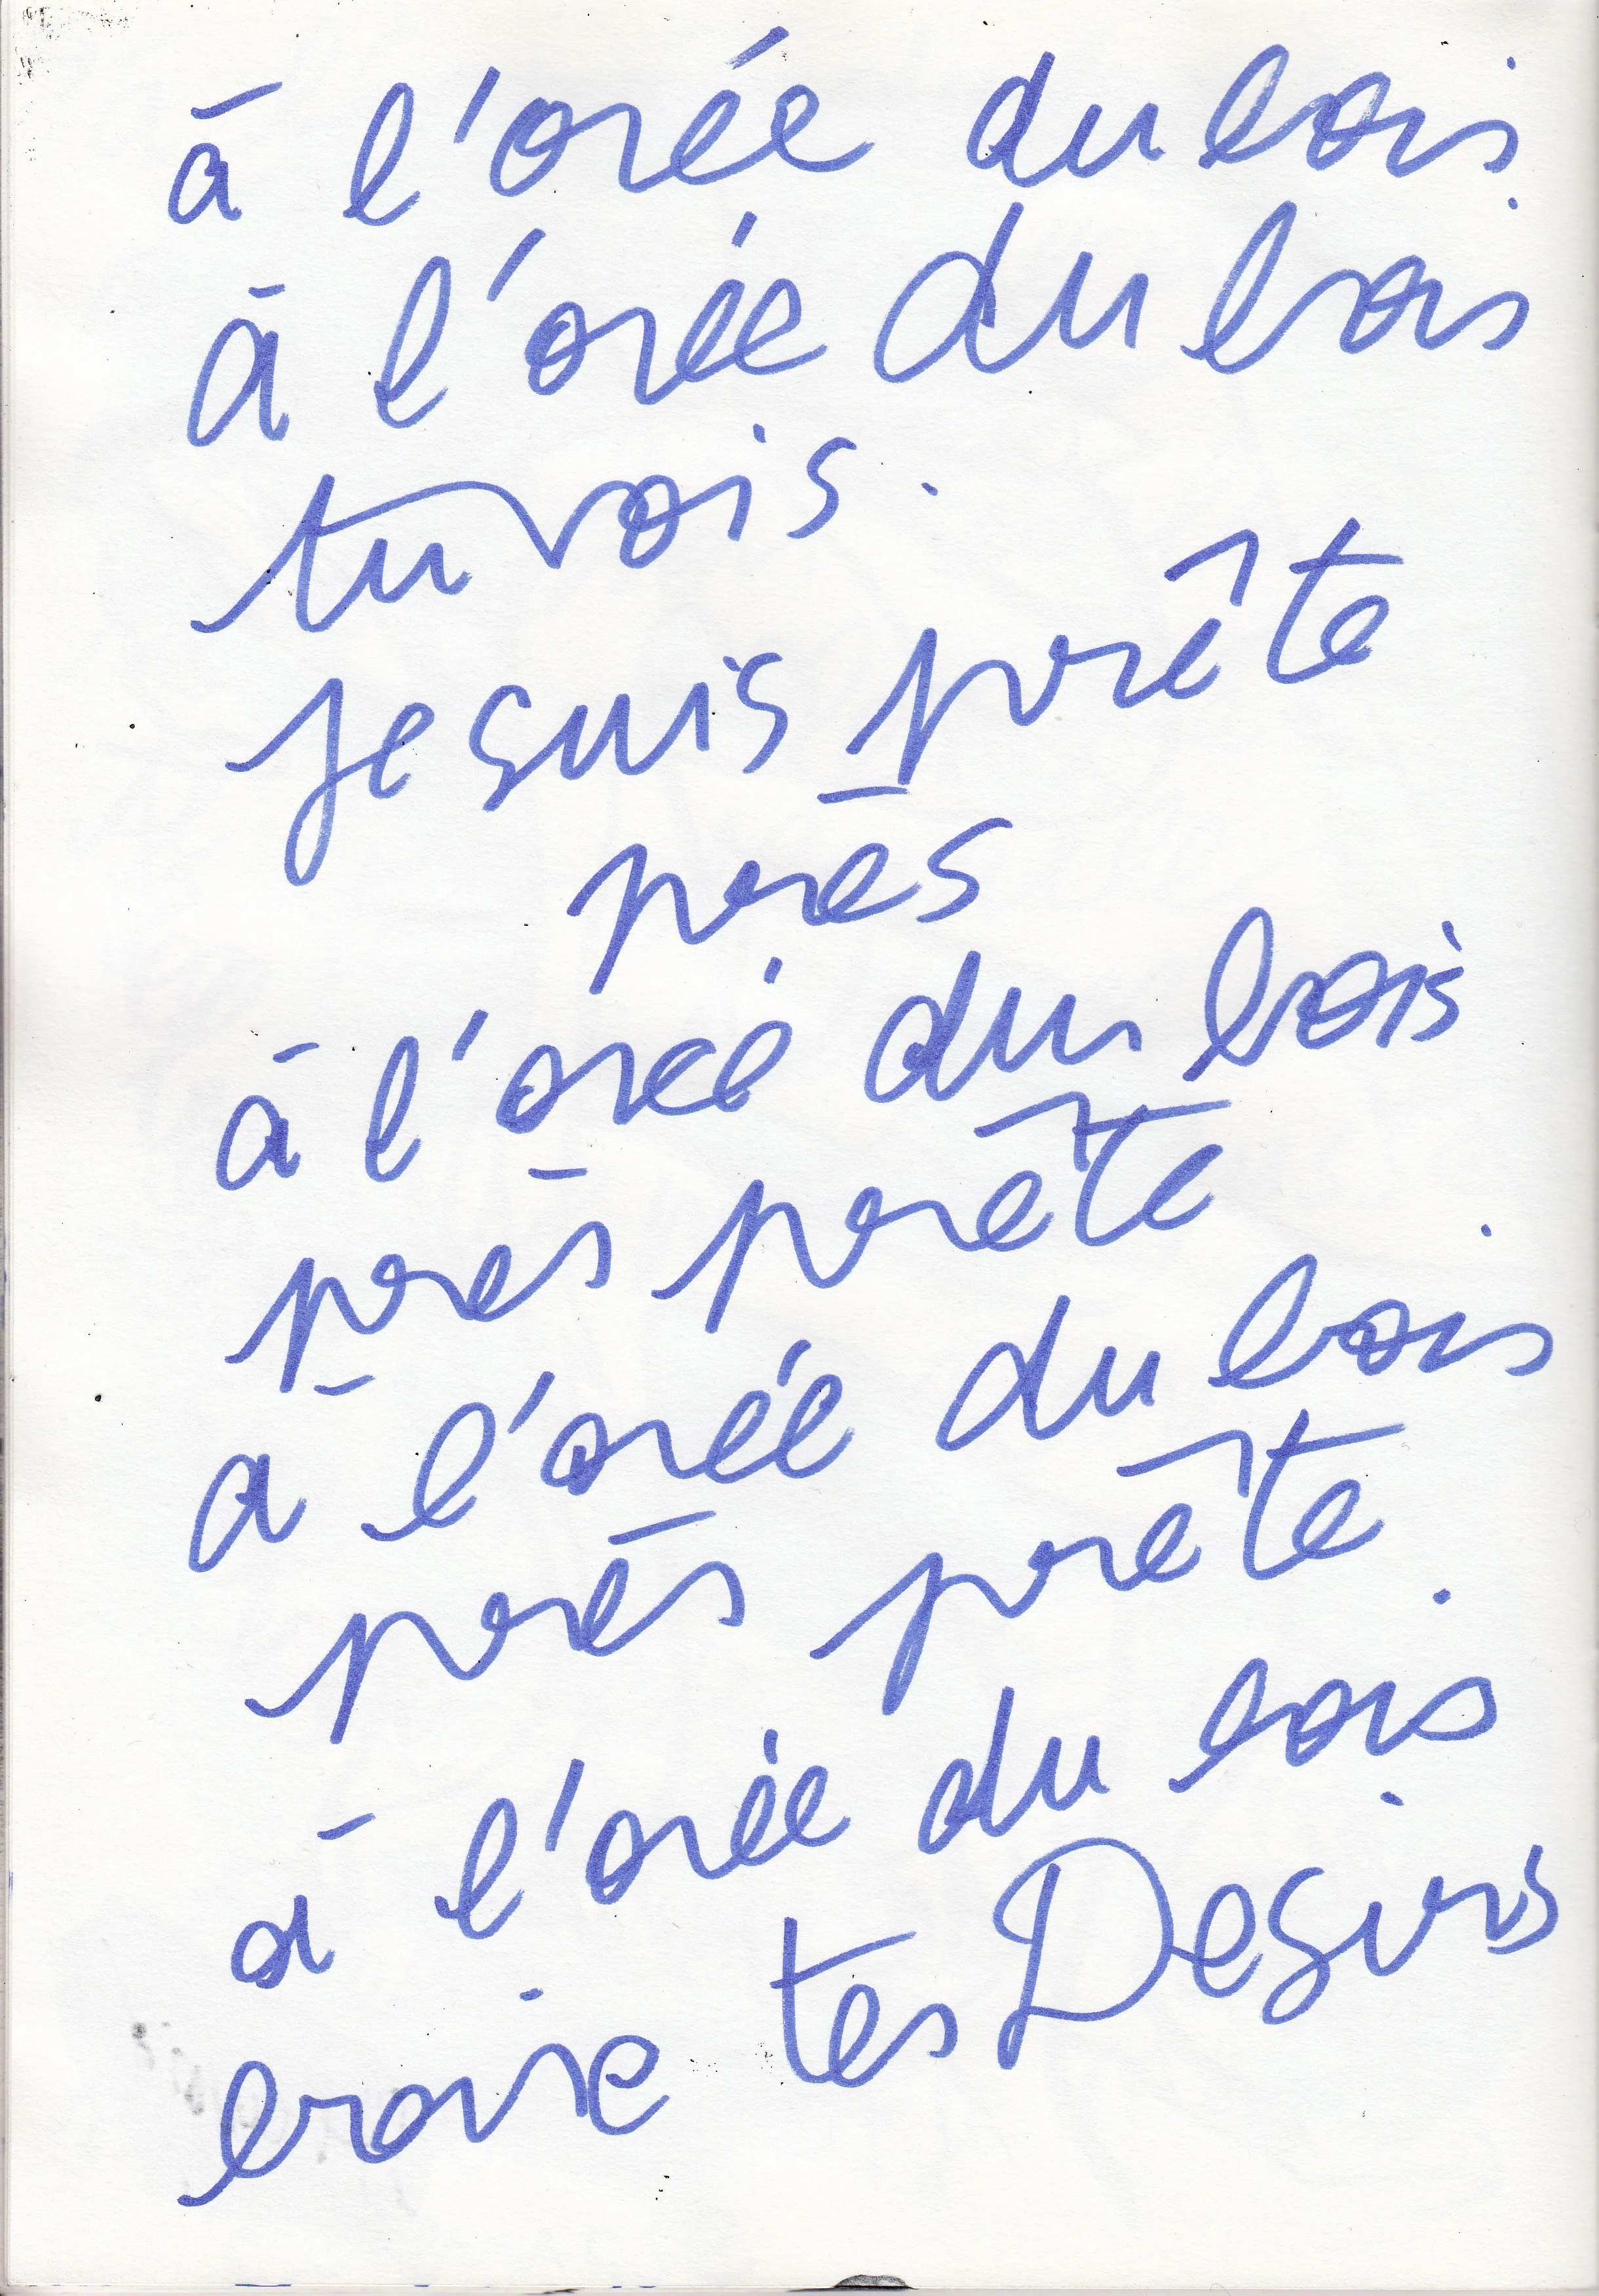 à l'orée du bois
à l'orée du bois
tu vois.
Je suis prête
près
à l'orée du bois
près prête
à l'orée du bois
près prête
à l'orée du bois
boire tes Desirs